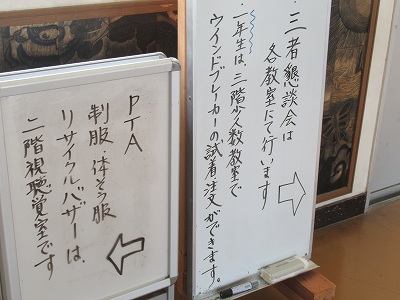 ・三者懇談会は
各教室にて行います
・一年生は、三階少人数教室で
ウインドブレーカーの試着・注文ができます。
PTA
制服・体そう服
リサイクルバザーは、
二階視聴覚室です